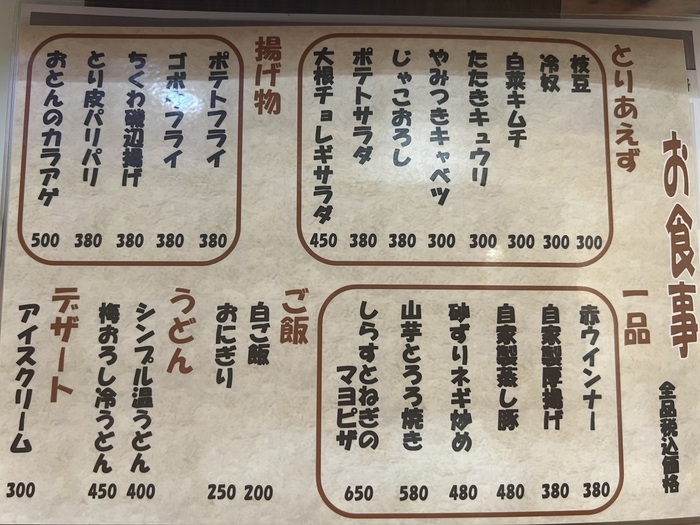 お食事
全品税込価格
とりあえず
枝豆 300
冷奴 300
白菜キムチ 300
たたきキュウリ 300
やみつきキャベツ 300
じゃこおろし 380
ポテトサラダ 380
大根チョレギサラダ 450
揚げ物
ポテトフライ 380
ゴボウフライ 380
ちくわ磯辺揚げ 380
とり皮パリパリ 380
おとんのカラアゲ 500
一品
赤ウインナー 380
自家製厚揚げ 380
自家製蒸し豚 480
砂ずりネギ炒め 480
山芋とろろ焼き 580
しらすとねぎの
マヨピザ 650
ご飯
白ご飯 200
おにぎり 250
うどん
シンプル温うどん 400
梅おろし冷うどん 450
デザート
アイスクリーム 300